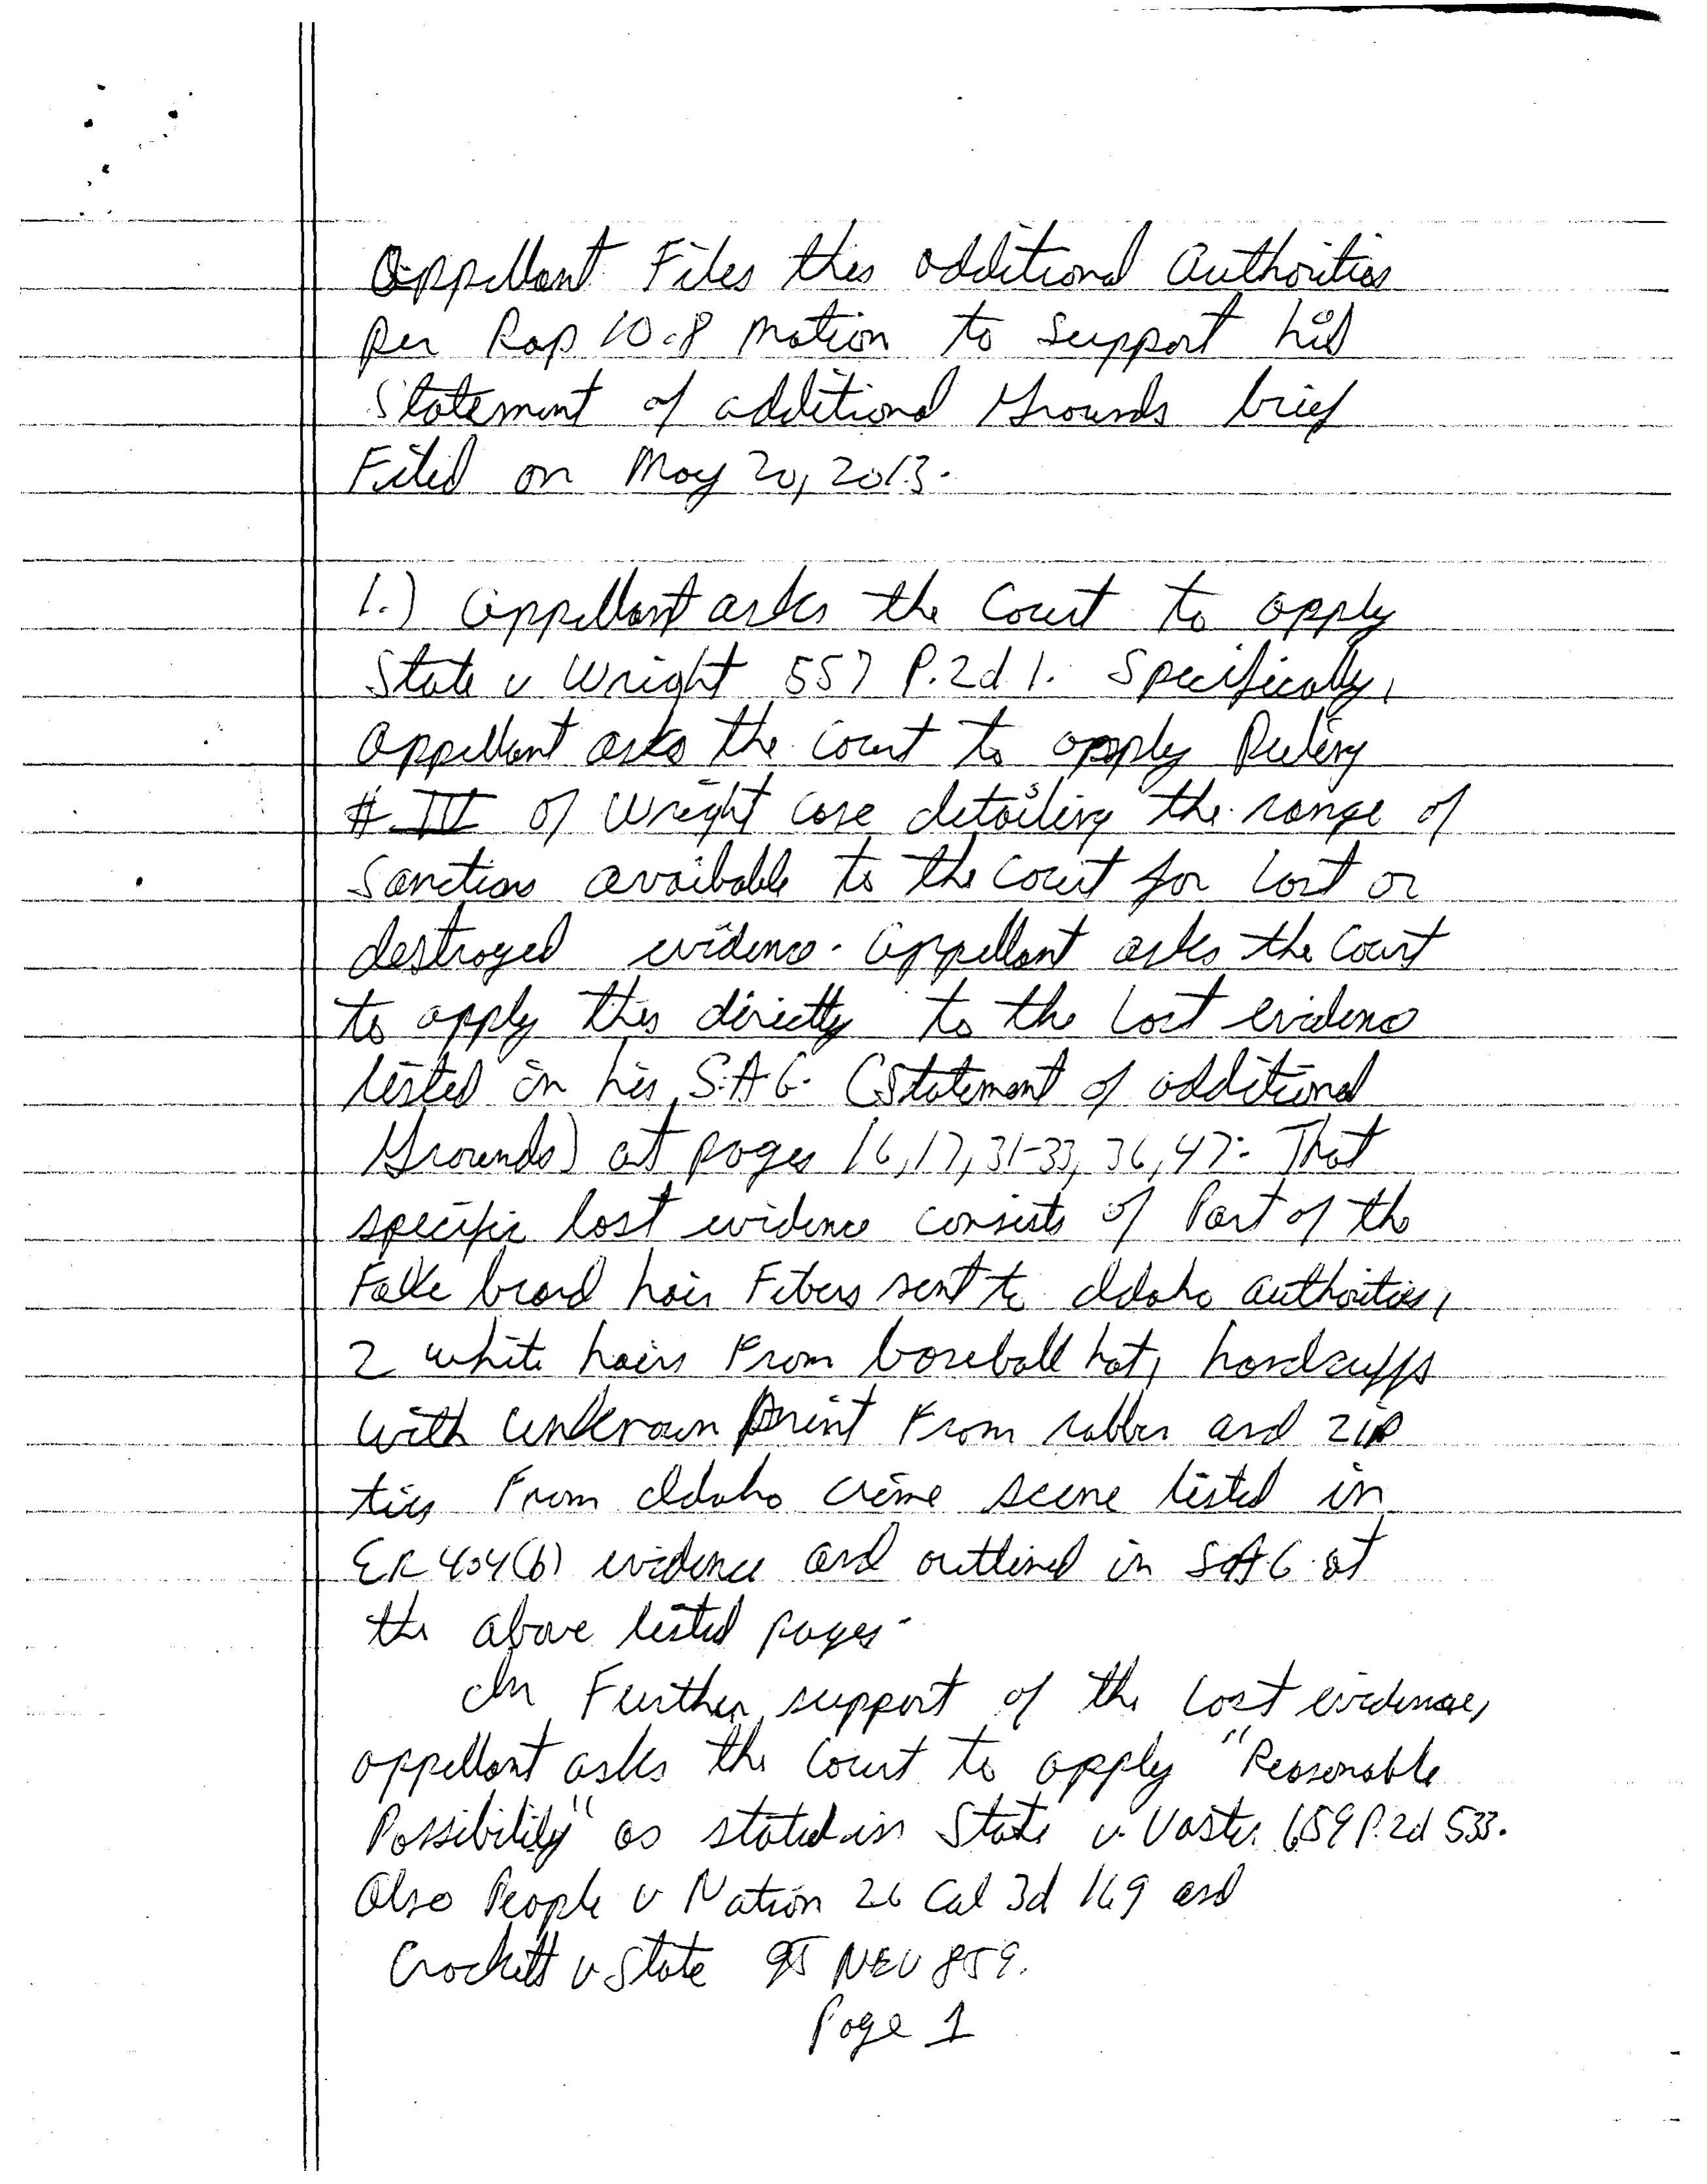 Appellant Files this additional Authorities
per Rap 10.8 motion to Support his
Statement of additional Grounds brief
Filed on May 20, 2013.
1.) Appellant asks the Court to apply
State v Wright 557 P.2d 1. Specifically,
Appellant asks the Court to apply Ruling
# IV of Wright case detailing the range of
Sanctions available to the Court for lost or
destroyed evidence. Appellant asks the Court
to apply this directly to the lost evidence
listed in his S.A.G. (Statement of additional
Grounds) at pages 16,17,31-33, 36,47. That
specific lost evidence consists of Part of the
Fake beard hair Fibers sent to Idaho authorities,
2 white hairs From baseball hat, handcuffs
with unknown print From robber and zip
ties From Idaho crime scene listed in
ER 404(b) evidence and outlined in SAG at
the above listed pages.
In Further support of the lost evidence,
appellant asks the Court to apply "Reasonable
Possibility" as stated in State v. Vaster 659 P.2d 533.
Also People v Nation 26 Cal 3d 169 and
Crockett v State 95 NEV 859.
Page 1